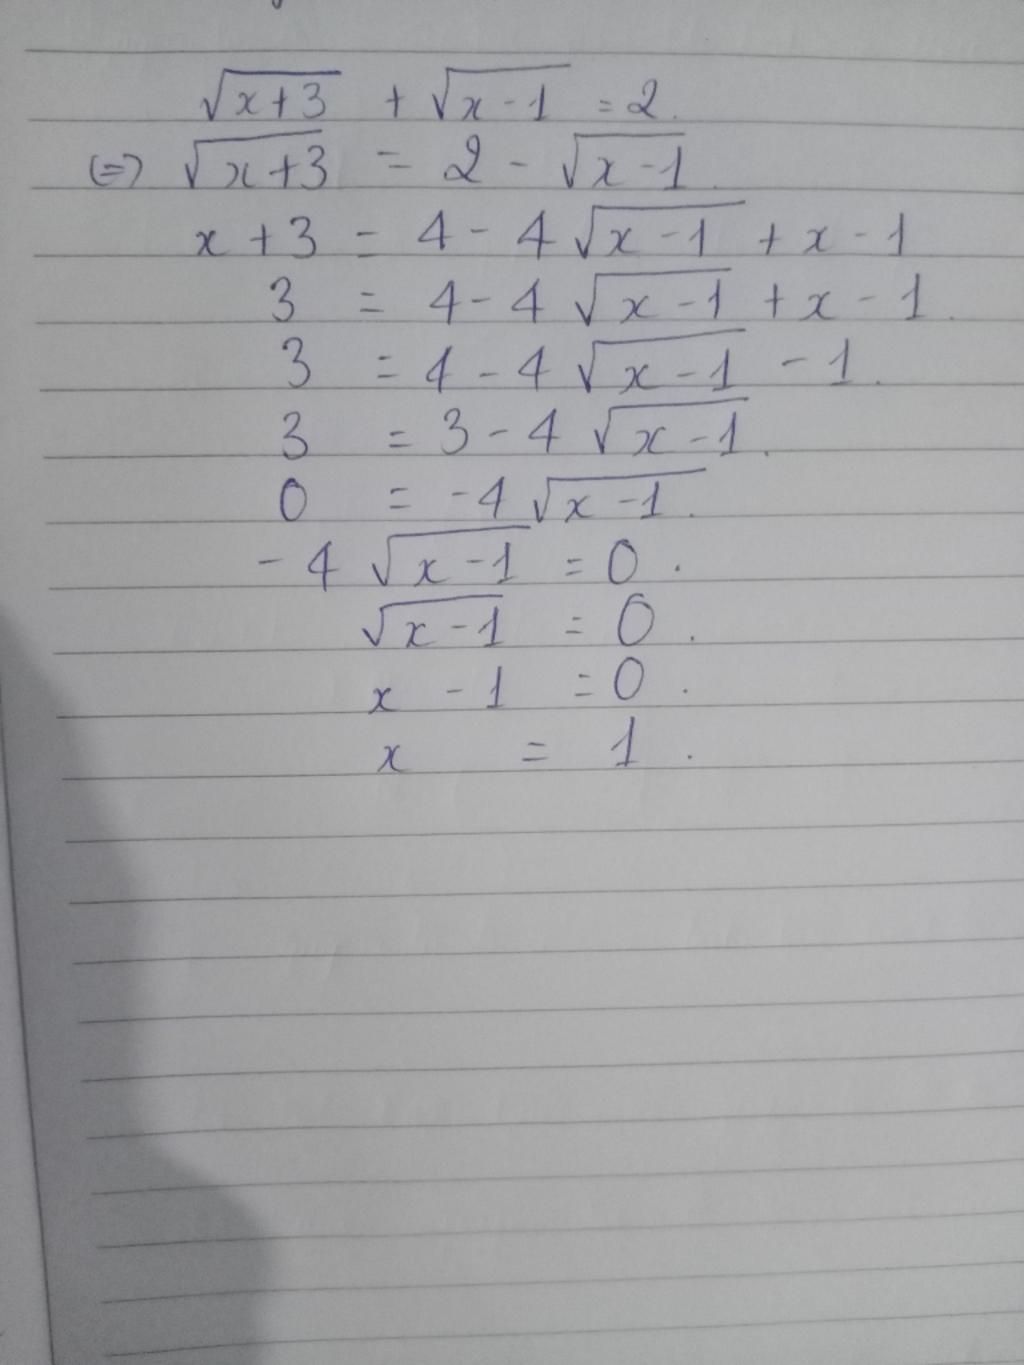 √(x+3) + √(x-1) = 2.
(=) √(x+3) = 2 - √(x-1).
x + 3 = 4 - 4 √(x-1) + x - 1
3 = 4 - 4 √(x-1) + x - 1.
3 = 4 - 4 √(x-1) - 1.
3 = 3 - 4 √(x-1).
0 = -4 √(x-1).
-4 √(x-1) = 0.
√(x-1) = 0.
x - 1 = 0.
x = 1.